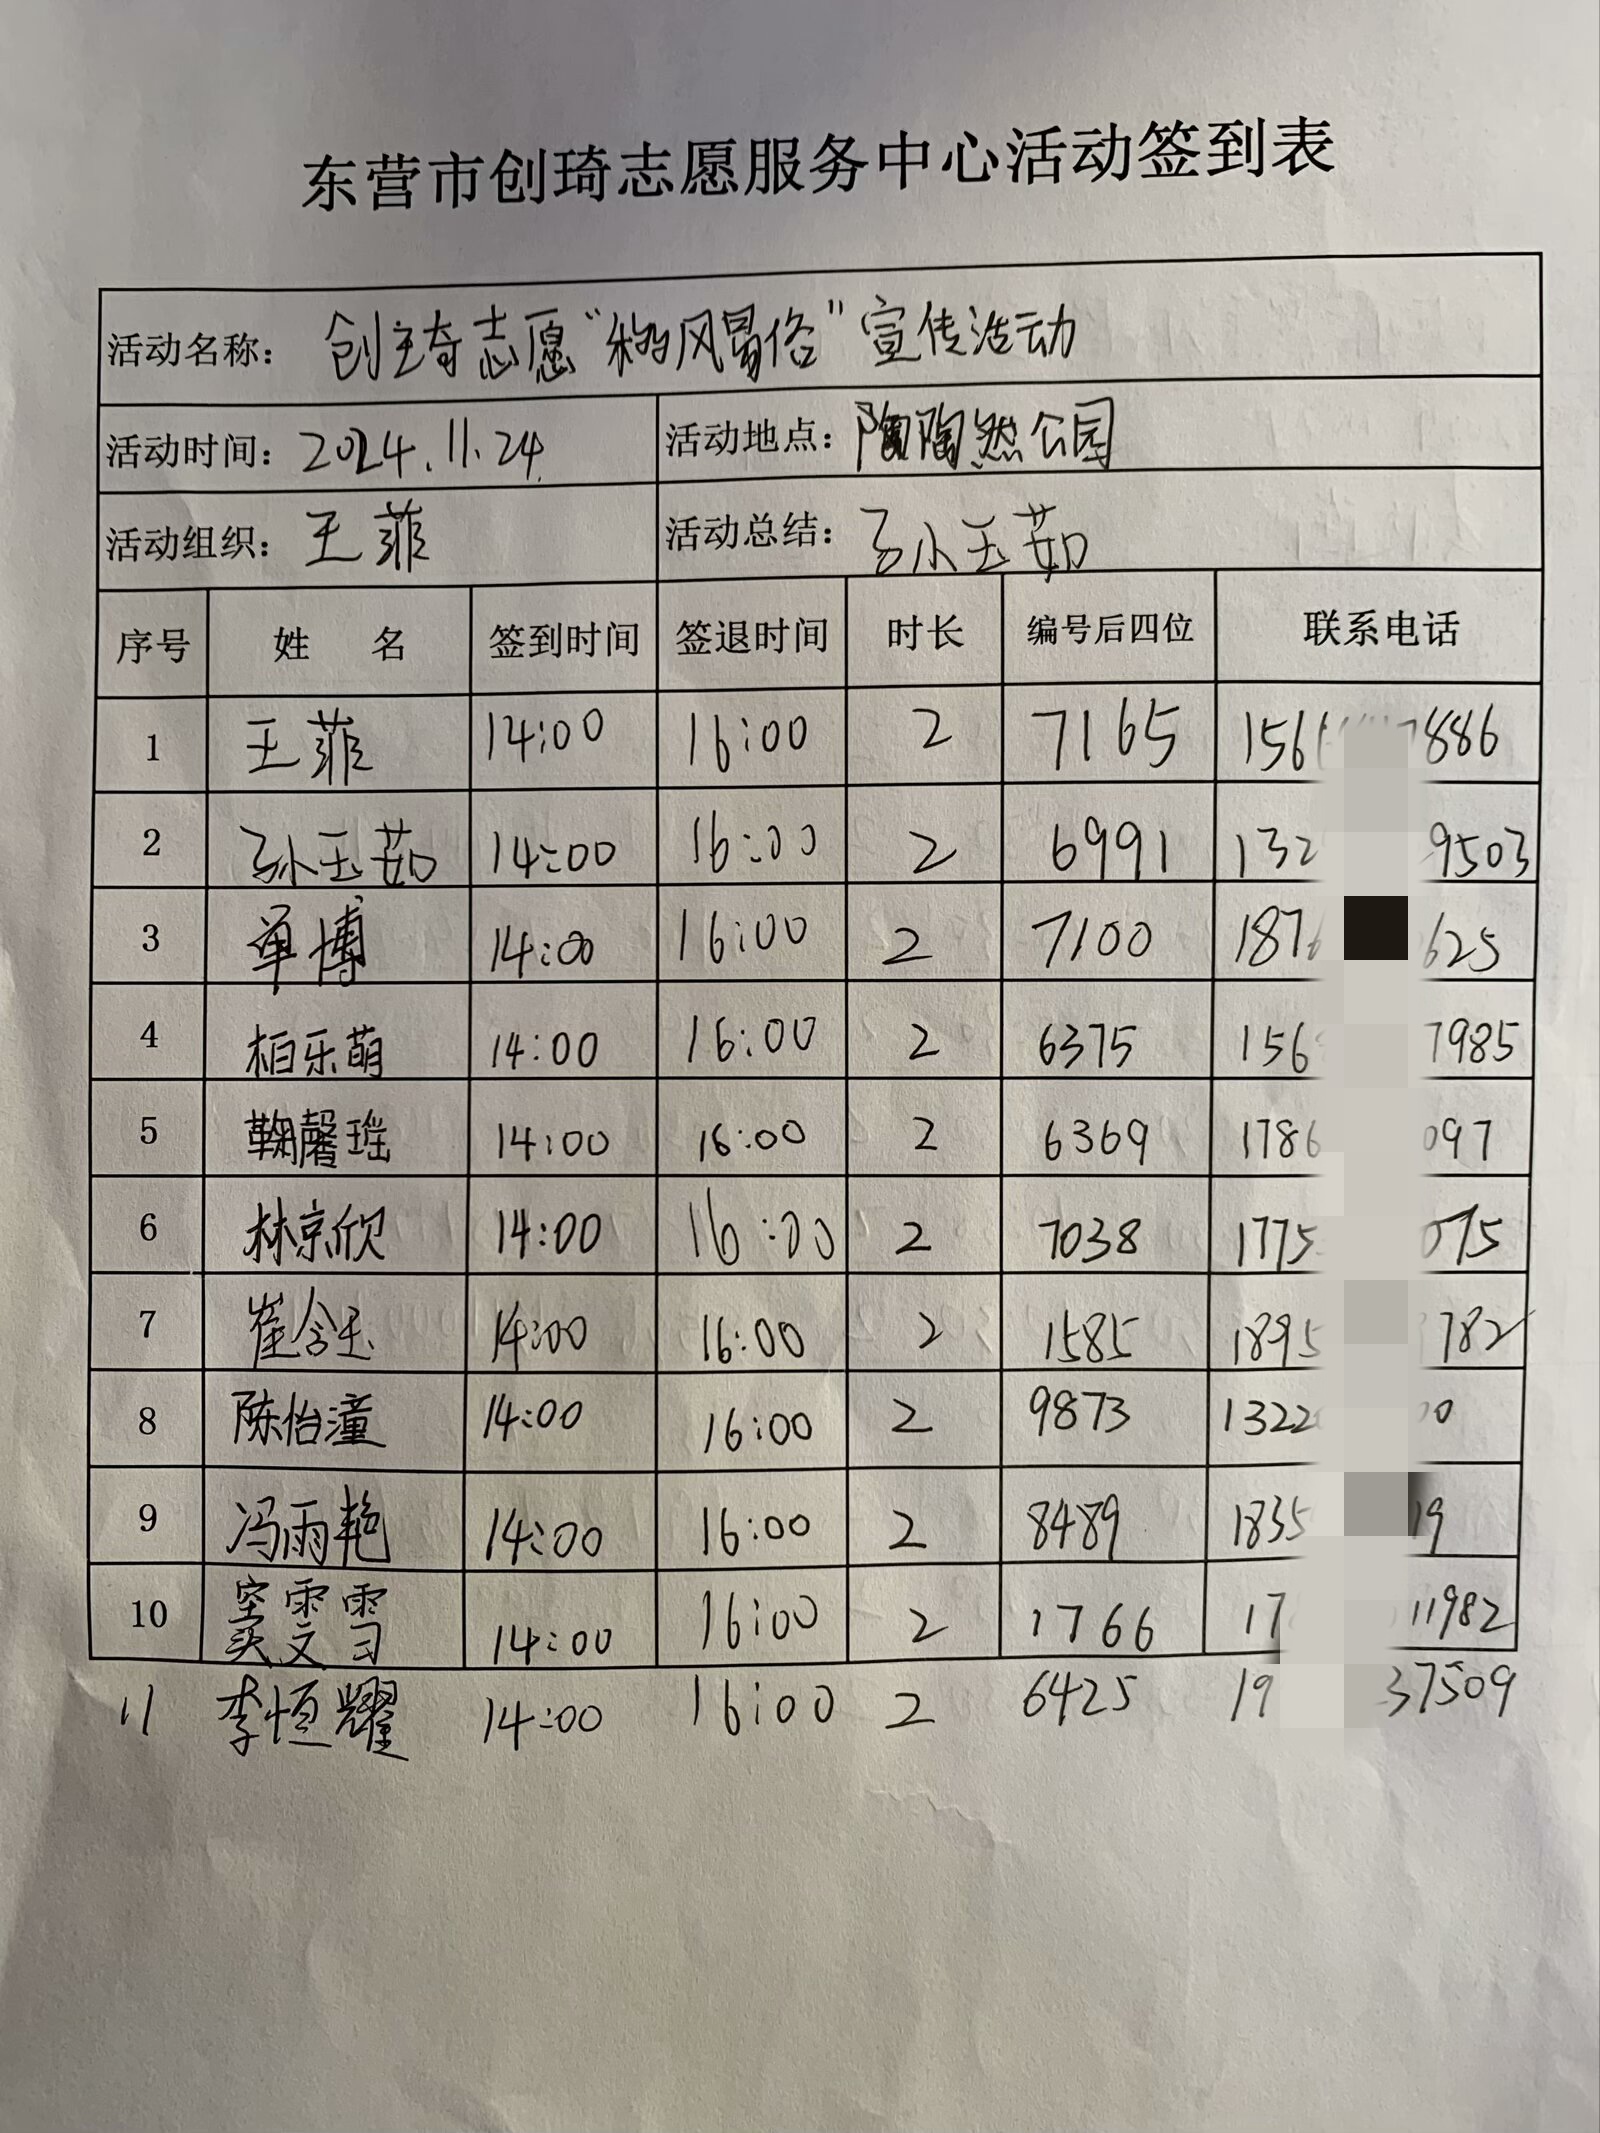 东营市创琦志愿服务中心活动签到表
活动名称： 创琦志愿“移风易俗”宣传活动
活动时间： 2024.11.24 活动地点： 陶然公园
活动组织： 王菲 活动总结： 孙玉茹
序号 姓 名 签到时间 签退时间 时长 编号后四位 联系电话
1 王菲 14:00 16:00 2 7165 156 886
2 孙玉茹 14:00 16:00 2 6991 132 9503
3 单博 14:00 16:00 2 7100 187 625
4 柏乐萌 14:00 16:00 2 6375 156 7985
5 鞠馨瑶 14:00 16:00 2 6369 1786 097
6 林京欣 14:00 16:00 2 7038 1775 075
7 崔含玉 14:00 16:00 2 1585 1895 782
8 陈怡潼 14:00 16:00 2 9873 1322 0
9 冯雨艳 14:00 16:00 2 8489 1835 19
10 窦雯雪 14:00 16:00 2 1766 17 11982
11 李恒耀 14:00 16:00 2 6425 19 37509